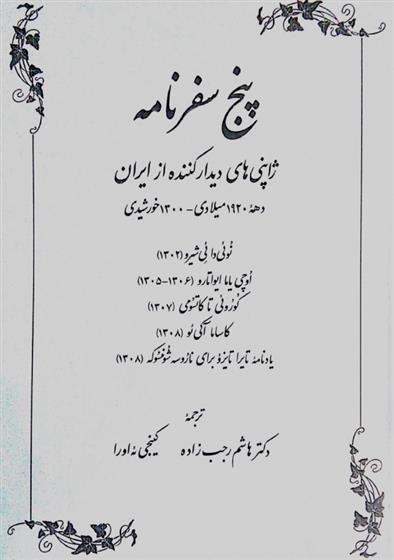 پنج سفرنامه
ژاپنی‌های دیدارکننده از ایران
دههٔ ۱۹۲۰ میلادی - ۱۳۰۰ خورشیدی
نُوئی‌دا ئی‌شیرو (۱۳۰۲)
اُوچی‌یاما ایواتارو (۱۳۰۶-۱۳۰۵)
کُورُونی تاکاتسُوی (۱۳۰۷)
کاساما آکی‌ئو (۱۳۰۸)
یادنامهٔ تایرا تایزو برای نازوسه شونسوکه (۱۳۰۸)
ترجمهٔ
دکتر هاشم رجب‌زاده کینجی ئه‌اورا